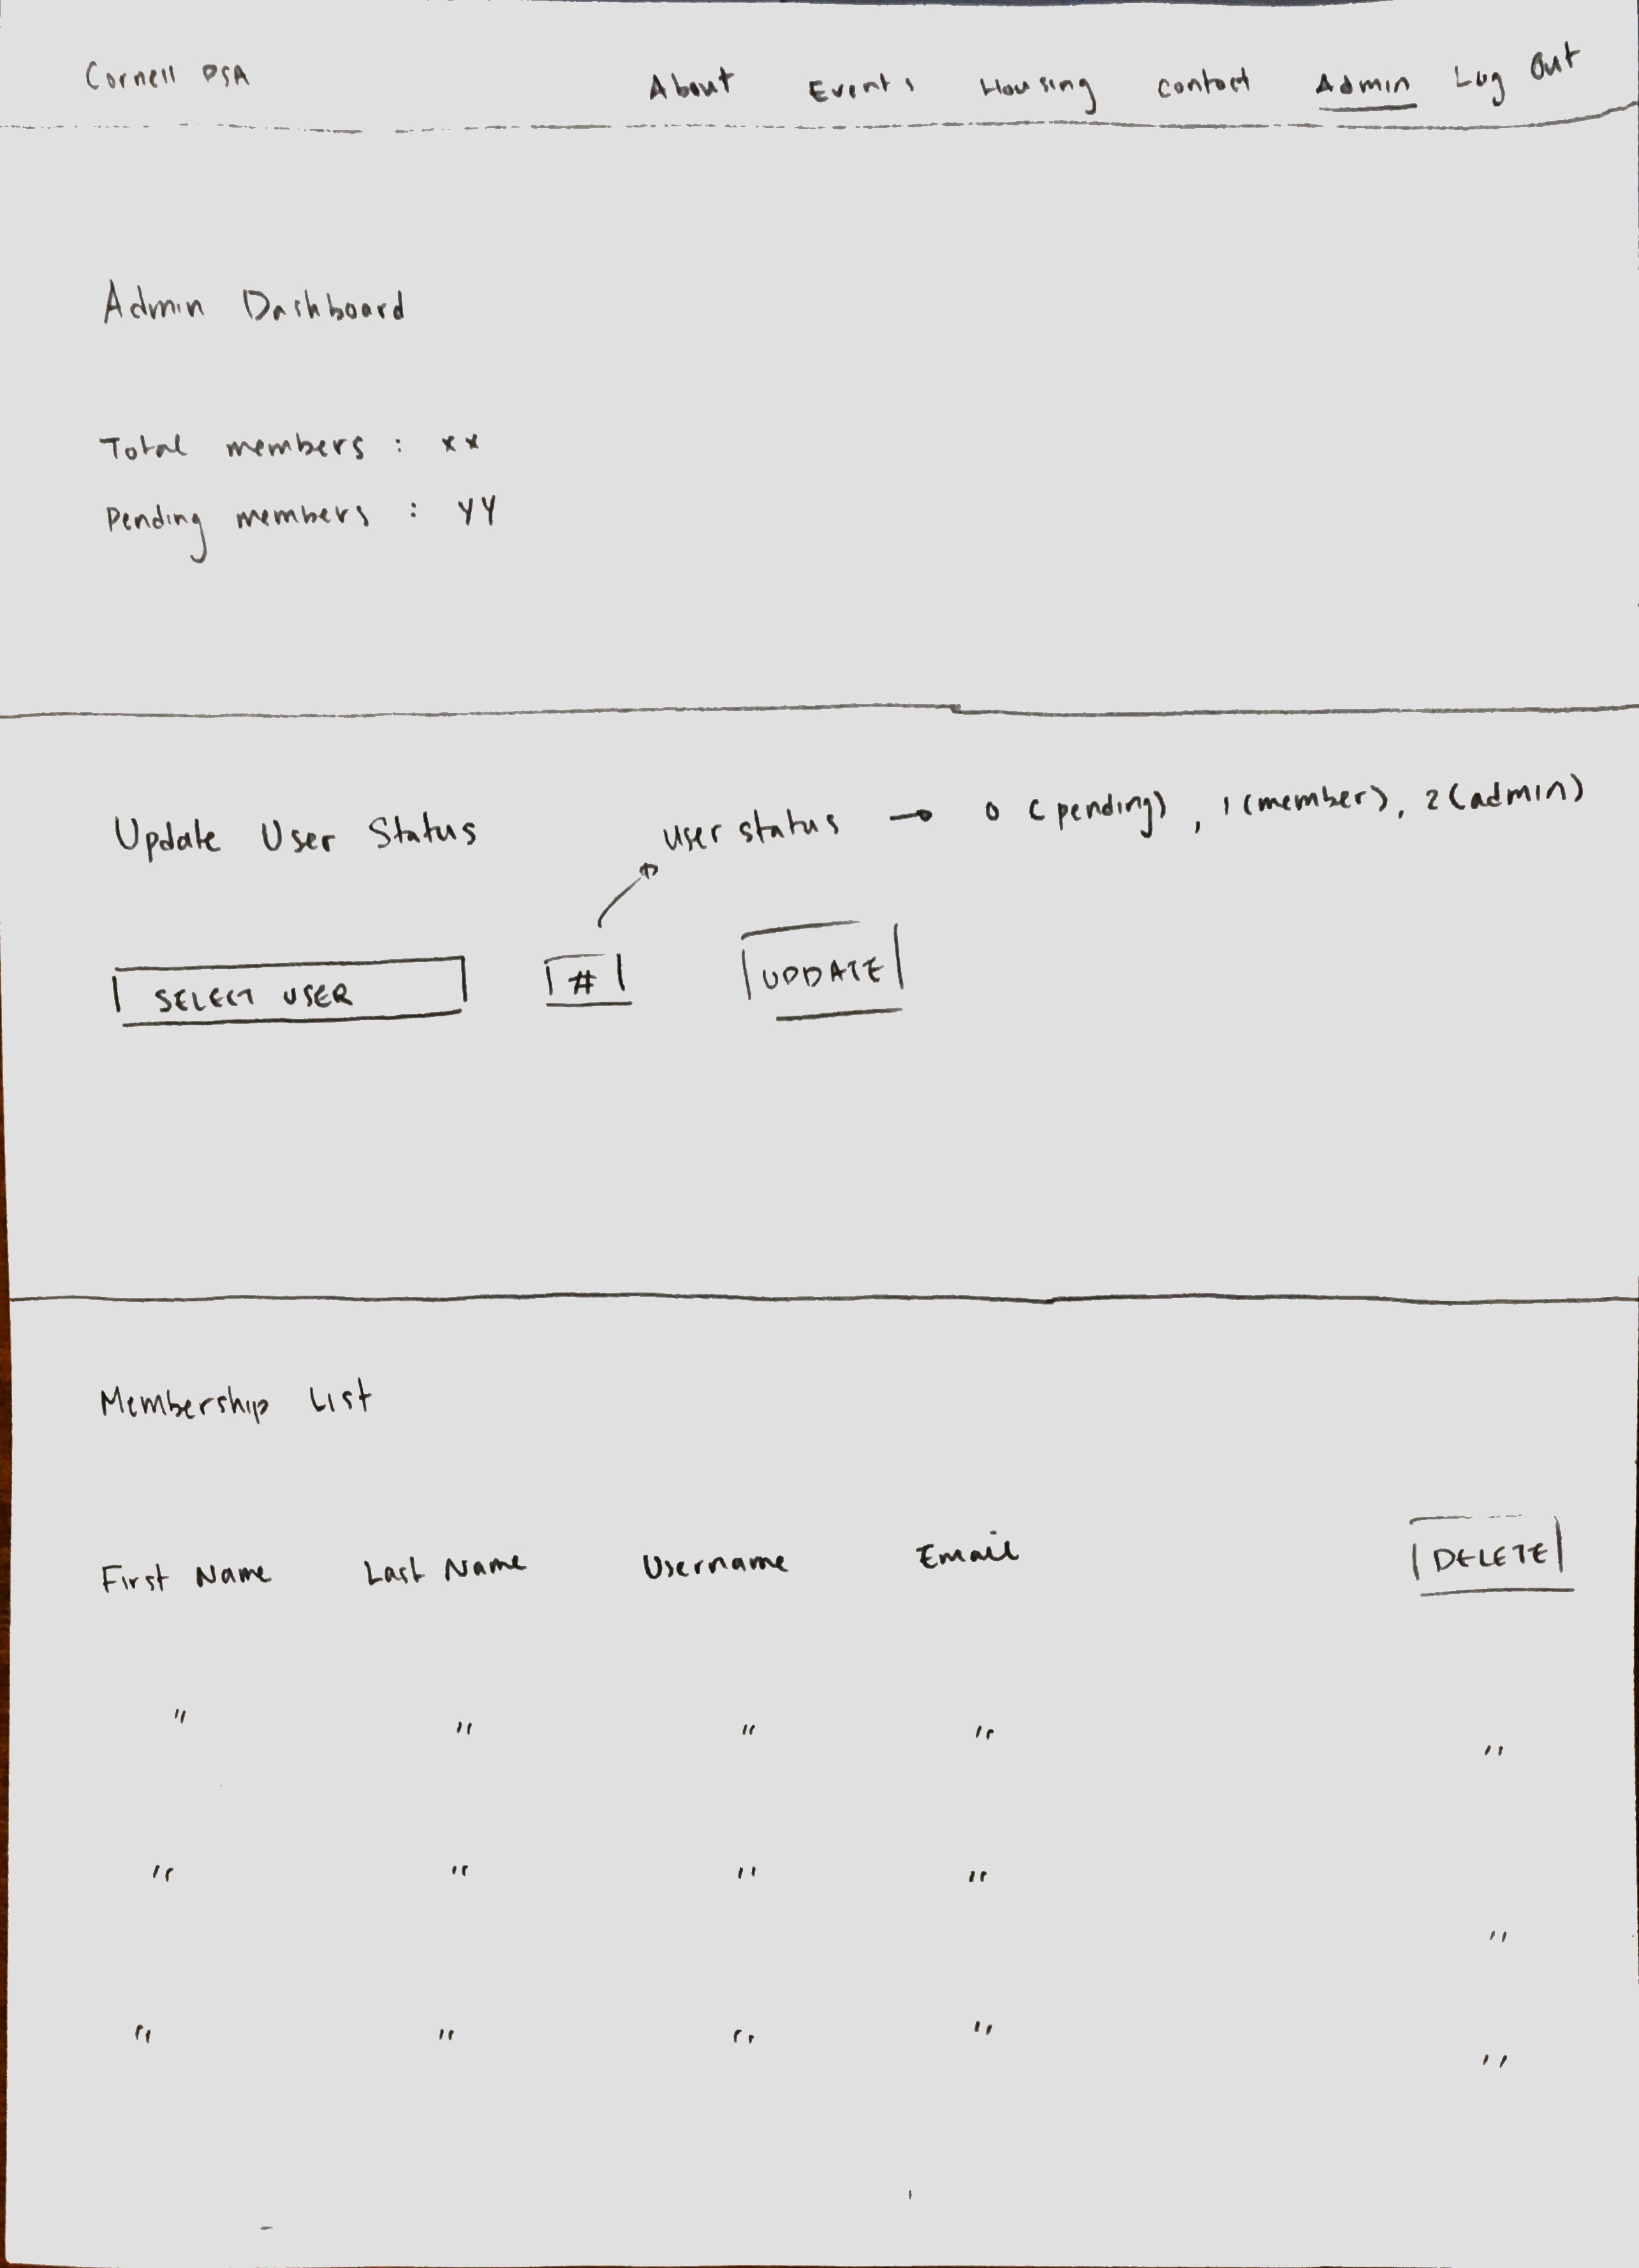 Cornell PSA About Events Housing Contact Admin Log Out
Admin Dashboard
Total members : xx
Pending members : YY
Update User Status
user status → 0 (pending), 1 (member), 2 (admin)
SELECT USER # UPDATE
Membership List
First Name Last Name Username Email DELETE
" " " " "
" " " " "
" " " " "